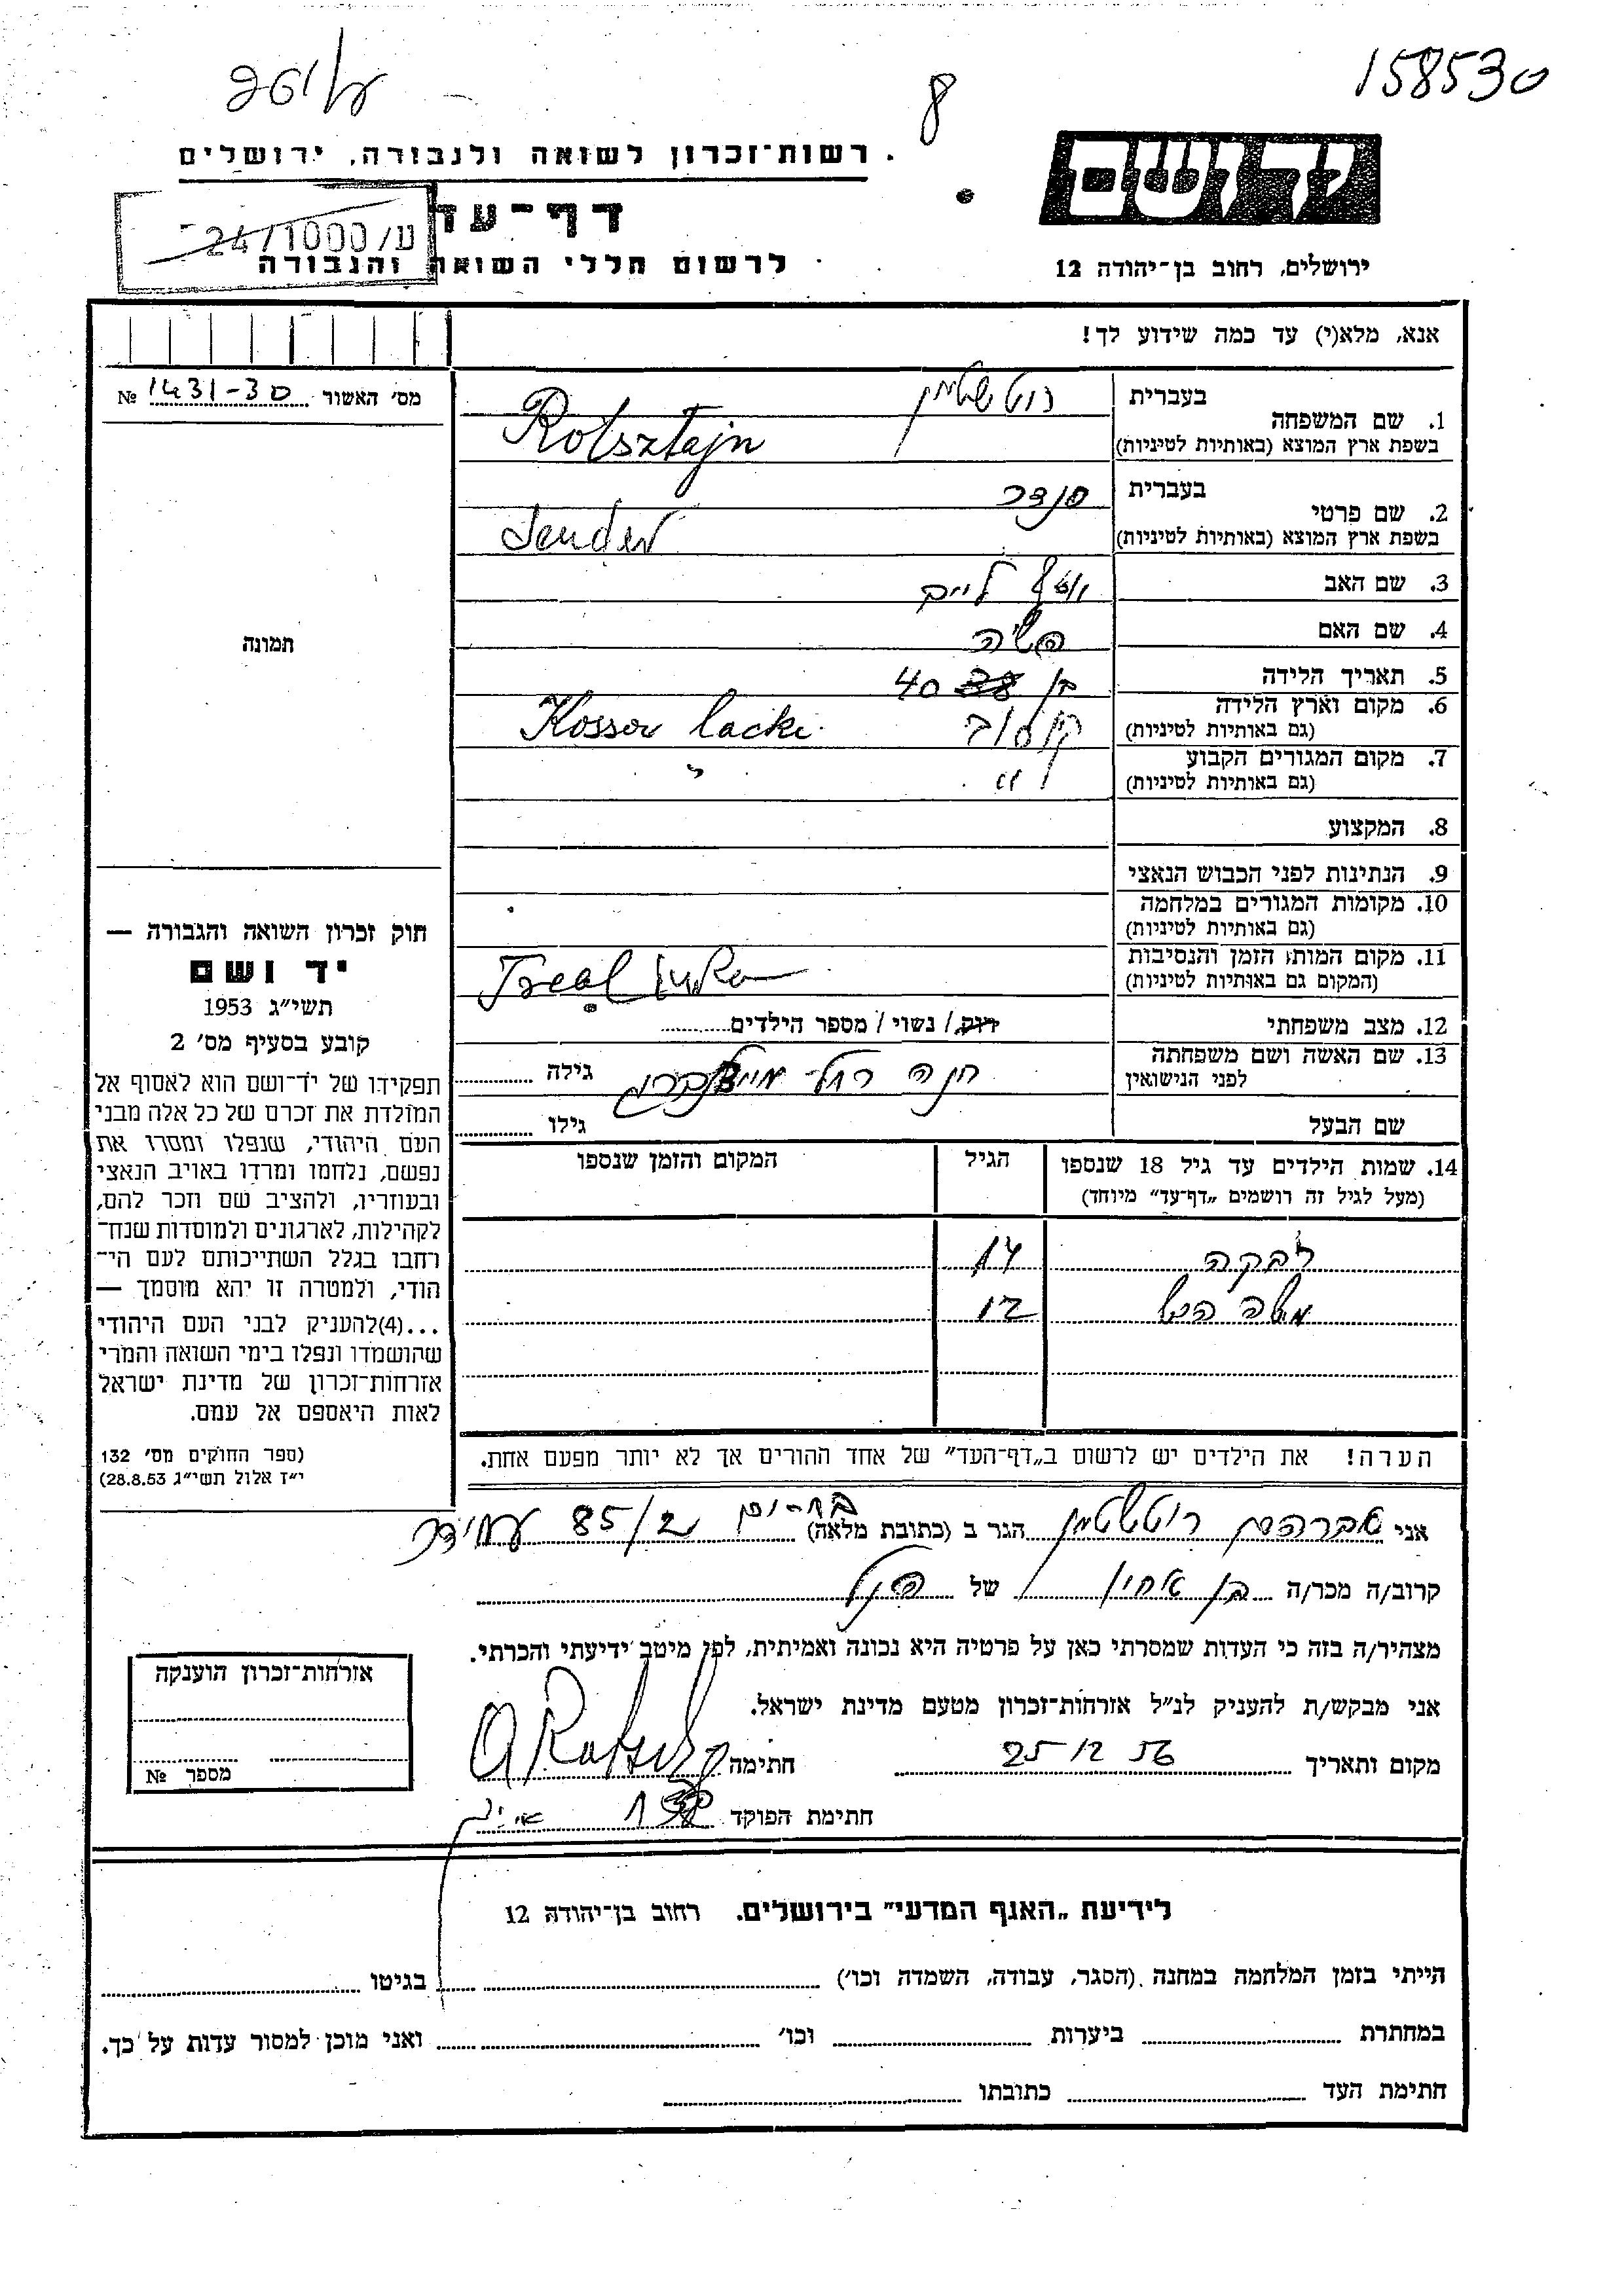 158530
8
רשות־זכרון לשואה ולגבורה, ירושלים
יד ושם
דף־עד
ע/24/1000
לרשום חללי השואה והגבורה
ירושלים, רחוב בן־יהודה 12
אנא, מלא(י) עד כמה שידוע לך!
מס׳ האשור № 1431-30
1. שם המשפחה בעברית רוטשטיין
בשפת ארץ המוצא (באותיות לטיניות) Rotsztajn
2. שם פרטי בעברית סנדר
בשפת ארץ המוצא (באותיות לטיניות) Sender
3. שם האב
4. שם האם
5. תאריך הלידה בן 38 40
6. מקום וארץ הלידה קוסוב Kossow lacki
(גם באותיות לטיניות)
7. מקום המגורים הקבוע " "
(גם באותיות לטיניות)
8. המקצוע
9. הנתינות לפני הכבוש הנאצי
10. מקומות המגורים במלחמה
(גם באותיות לטיניות)
11. מקום המות, הזמן והנסיבות
(המקום גם באותיות לטיניות) Treblinka
12. מצב משפחתי רווק / נשוי / מספר הילדים
13. שם האשה ושם משפחתה
לפני הנישואין חנה רחל גילה
שם הבעל גילו
14. שמות הילדים עד גיל 18 שנספו הגיל המקום והזמן שנספו
(מעל לגיל זה רושמים „דף־עד" מיוחד)
רבקה 14
משה 12
הערה! את הילדים יש לרשום ב„דף־העד" של אחד ההורים אך לא יותר מפעם אחת.
תמונה
חוק זכרון השואה והגבורה —
יד ושם
תשי״ג 1953
קובע בסעיף מס׳ 2
תפקידו של יד־ושם הוא לאסוף אל
המולדת את זכרם של כל אלה מבני
העם היהודי, שנפלו ומסרו את
נפשם, נלחמו ומרדו באויב הנאצי
ובעוזריו, ולהציב שם וזכר להם,
לקהילות, לארגונים ולמוסדות שנח־
רחבו בגלל השתייכותם לעם הי־
הודי, ולמטרה זו יהא מוסמך —
...(4)להעניק לבני העם היהודי
שהושמדו ונפלו בימי השואה והמרי
אזרחות־זכרון של מדינת ישראל
לאות היאספם אל עמם.
(ספר החוקים מס׳ 132
י״ז אלול תשי״ג 28.8.53)
אני אברהם רוטשטיין הגר ב (כתובת מלאה) בת-ים 85/2
קרוב/ה מכר/ה בן אחיו של הנ״ל
מצהיר/ה בזה כי העדות שמסרתי כאן על פרטיה היא נכונה ואמיתית, לפי מיטב ידיעתי והכרתי.
אני מבקש/ת להעניק לנ״ל אזרחות־זכרון מטעם מדינת ישראל.
מקום ותאריך 25 12 56 חתימה
חתימת הפוקד
אזרחות־זכרון הוענקה
מספר №
לידיעת „האגף המדעי" בירושלים. רחוב בן־יהודה 12
הייתי בזמן המלחמה במחנה (הסגר, עבודה, השמדה וכו׳) בגיטו
במחתרת ביערות וכו׳ ואני מוכן למסור עדות על כך.
חתימת העד כתובתו